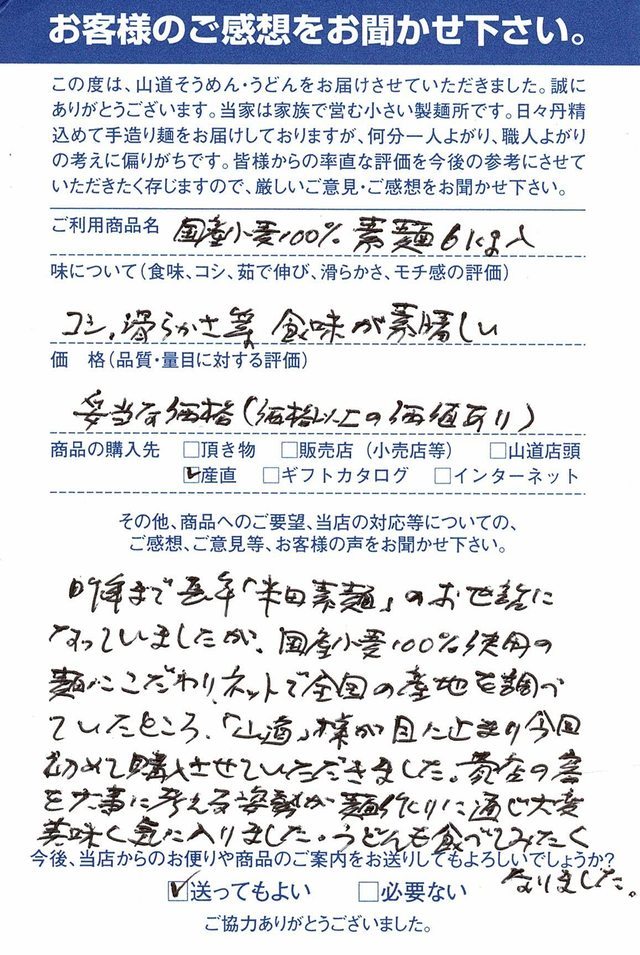 お客様のご感想をお聞かせ下さい。
この度は、山道そうめん・うどんをお届けさせていただきました。誠に
ありがとうございます。当家は家族で営む小さい製麺所です。日々丹精
込めて手造り麺をお届けしておりますが、何分一人よがり、職人よがり
の考えに偏りがちです。皆様からの率直な評価を今後の参考にさせて
いただきたく存じますので、厳しいご意見・ご感想をお聞かせ下さい。
ご利用商品名 国産小麦100% 素麺 6kg入
味について(食味、コシ、茹で伸び、滑らかさ、モチ感の評価)
コシ、滑らかさ等、食味が素晴しい
価 格(品質・量目に対する評価)
妥当な価格(価格以上の価値あり)
商品の購入先 □頂き物 □販売店(小売店等) □山道店頭
☑産直 □ギフトカタログ □インターネット
その他、商品へのご要望、当店の対応等についての、
ご感想、ご意見等、お客様の声をお聞かせ下さい。
昨年まで長年「半田素麺」のお世話に
なっていましたが、国産小麦100%使用の
麺にこだわり、ネットで全国の産地を調べ
ていたところ、「山道」様が目に止まり今回
初めて購入させていただきました。貴店の客
を大事に考える姿勢が麺作りに通じ大変
美味く気に入りました。うどんも食べてみたく
なりました。
今後、当店からのお便りや商品のご案内をお送りしてもよろしいでしょうか?
☑送ってもよい □必要ない
ご協力ありがとうございました。